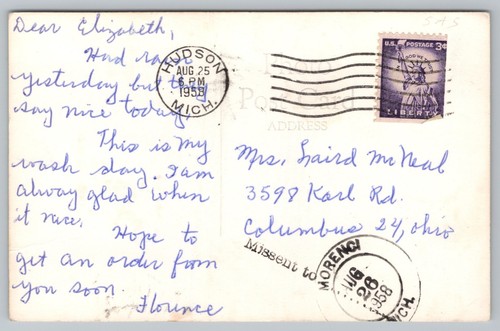 Dear Elizabeth,
Had rain
yesterday but they
say nice today,
This is my
wash day. I am
alway glad when
it race.
Hope to
get an order from
you soon.
Florence
HUDSON
AUG. 25
6 PM
1958
MICH.
U.S. POSTAGE 3¢
LIBERTY
Post Card
ADDRESS
Mrs. Laird McNeal
3598 Karl Rd.
Columbus 24, Ohio
Missent to
MORENCI
AUG
26
1958
MICH.